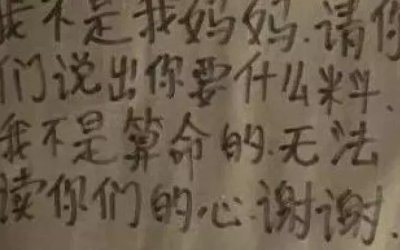 我不是我妈妈.请你
们说出你要什么料.
我不是算命的.无法
读你们的心.谢谢.